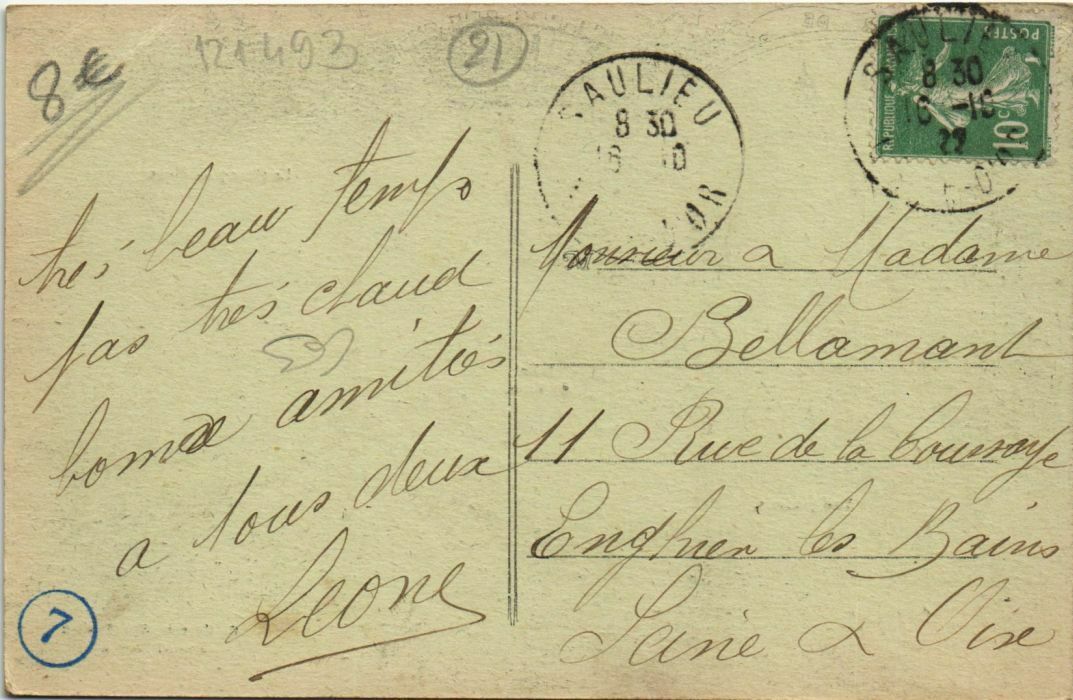 8€
121493
21
SAULIEU
8 30
16 10
OR
SAULIEU
8 30
16 -10
D'OR
POSTES
REPUBLIQUE
10 C
très beau temps
pas très chaud
bonnes amitiés
a tous deux
Leone
7
Monsieur & Madame
Bellamant
11 Rue de la Coussaye
Enghien les Bains
Seine & Oise